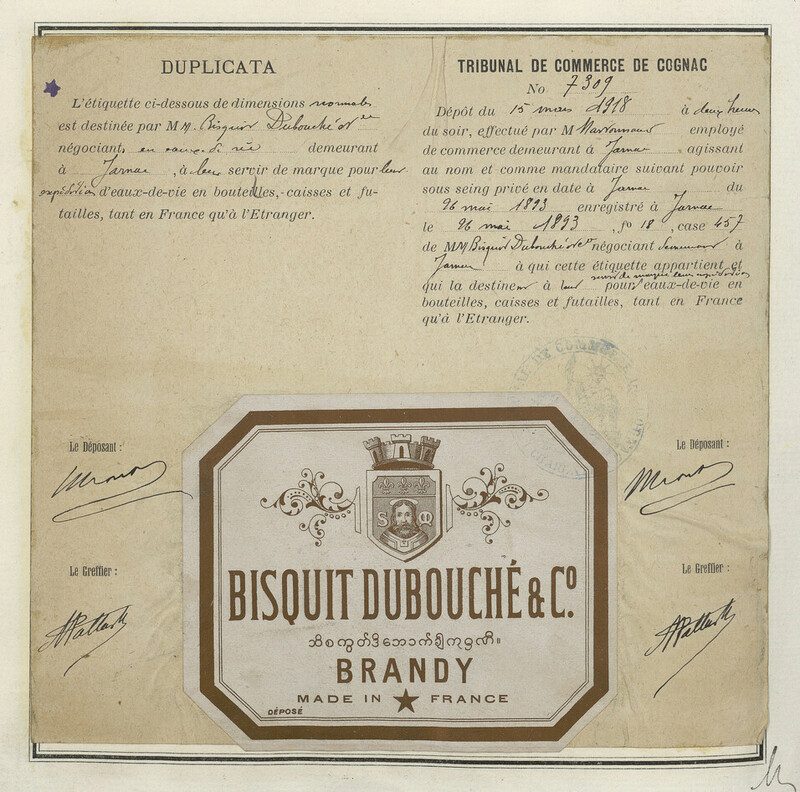 DUPLICATA
L'étiquette ci-dessous de dimensions normales
est destinée par MM. Bisquit Dubouché & Cie
négociants en eaux de vie demeurant
à Jarnac, à leur servir de marque pour leur
expédition d'eaux-de-vie en bouteilles, caisses et fu-
tailles, tant en France qu'à l'Etranger.
TRIBUNAL DE COMMERCE DE COGNAC
No 7309
Dépôt du 15 mars 1918 à deux heures
du soir, effectué par M employé
de commerce demeurant à Jarnac agissant
au nom et comme mandataire suivant pouvoir
sous seing privé en date à Jarnac du
26 mai 1893 enregistré à Jarnac
le 26 mai 1893, fo 18, case 457
de MM Bisquit Dubouché & Cie négociant demeurant à
Jarnac à qui cette étiquette appartient et
servir de marque leurs expéditions
qui la destinent à leur pour eaux-de-vie en
bouteilles, caisses et futailles, tant en France
qu'à l'Etranger.
Le Déposant :
Le Déposant :
Le Greffier :
Le Greffier :
S Q
BISQUIT DUBOUCHÉ & Co.
BRANDY
MADE IN FRANCE
DÉPOSÉ